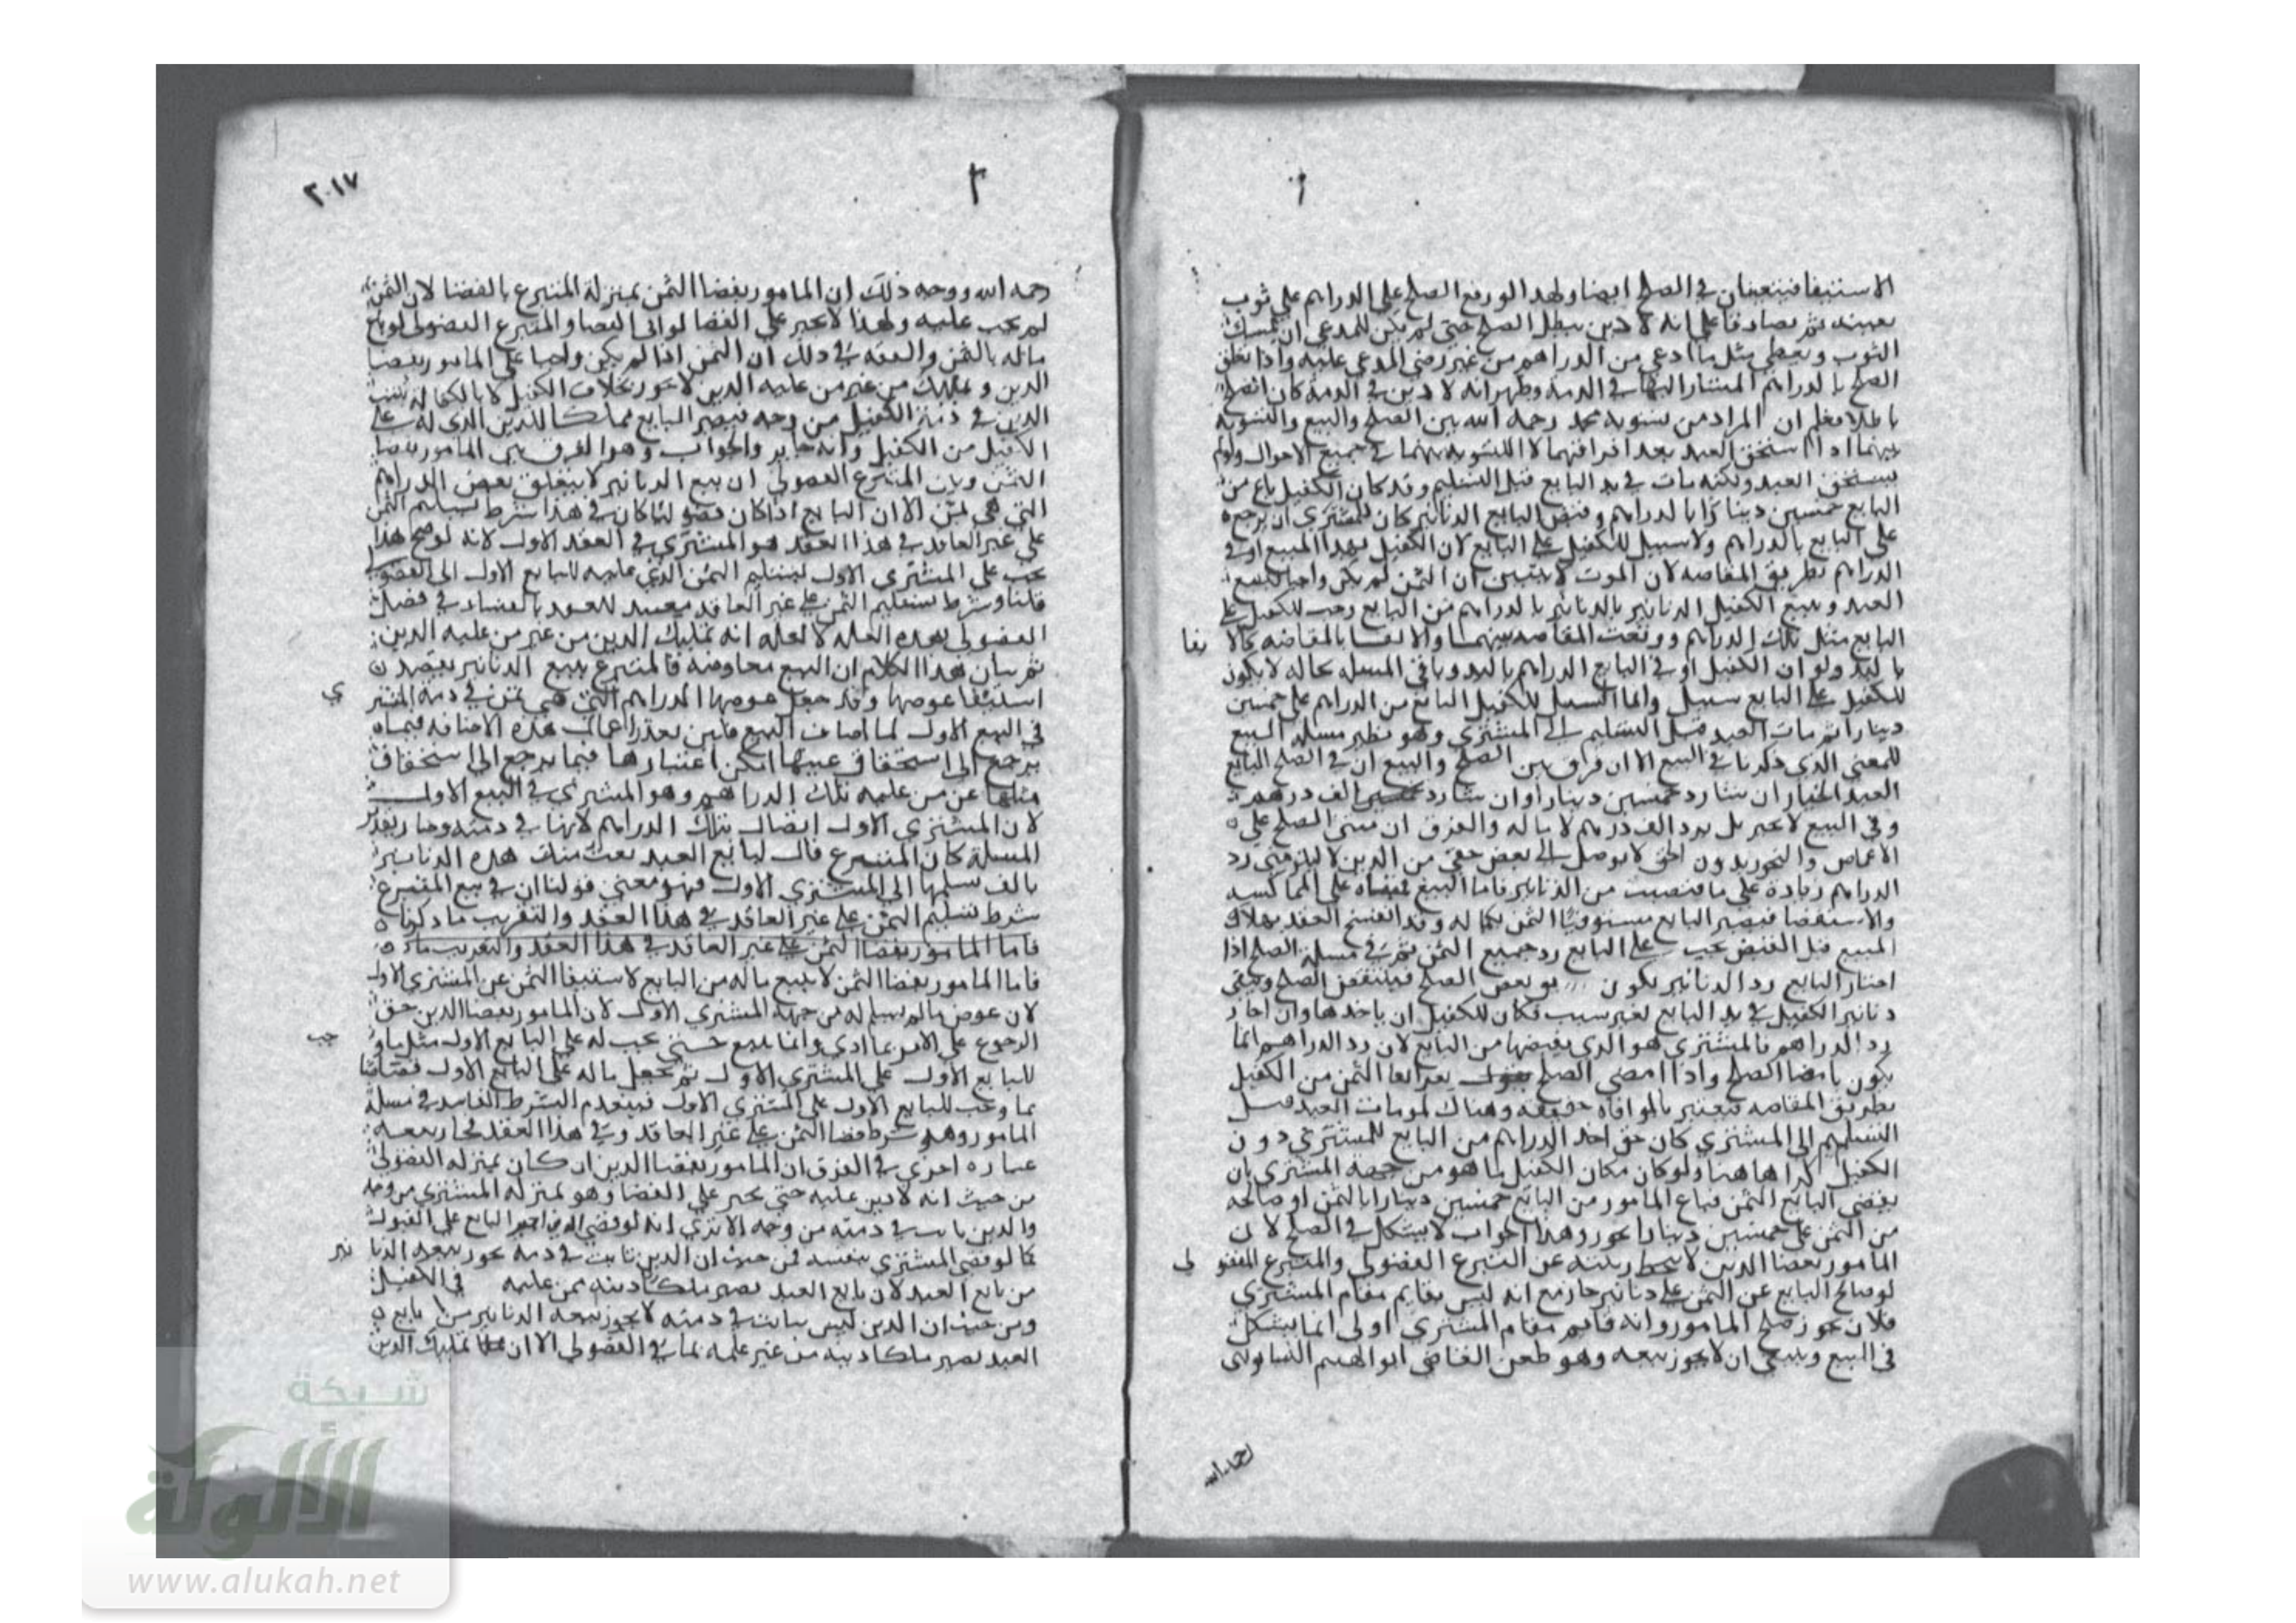 الاستيفا فيتعينان في الصلح ايضا ولهذا لو رفع الصلح على الدراهم على ثوب
بعينه ثم تصادقا على انه لا دين يبطل الصلح حتى لم يكن للمدعي ان يمسك
الثوب ويعطي مثل ما ادعى من الدراهم من غير رضى المدعى عليه واذا تعلق
الصلح بالدراهم المشار اليها في الذمة وظهر انه لا دين في الذمة كان الصلح
باطلا فعلم ان المراد من تسوية محمد رحمه الله بين الصلح والبيع والتسوية
بينهما اذا استحق العبد بعد افتراقهما لا التسوية بينهما في جميع الاحوال ولو لم
يستحق العبد ولكنه مات في يد البايع قبل التسليم وقد كان الكفيل باع من
البايع خمسين دينارا بالدراهم وقبض البايع الدنانير كان للمشتري ان يرجع
على البايع بالدراهم ولا سبيل للكفيل على البايع لان الكفيل بهذا البيع اوفى
الدراهم بطريق المقاصه لان الموت لا يتبين ان الثمن لم يكن واجبا
العبد وببيع الكفيل الدنانير بالدراهم من البايع وجب للكفيل على
البايع مثل تلك الدراهم ووقعت المقاصه بينهما والايفا بالمقاصه كالا
يفا
باليد ولو ان الكفيل اوفى البايع الدراهم باليد وباقي المسله بحاله لا يكون
للكفيل على البايع سبيل وانما السبيل للكفيل البايع من الدراهم على خمسين
دينارا ثم مات العبد قبل التسليم الى المشتري وهو نظير مسلة البيع
للمعنى الذي ذكرنا في البيع الا ان فرق بين الصلح والبيع ان في الصلح البايع
العبد الخيار ان شا رد خمسين دينارا وان شا رد الف درهم
وفي البيع لا يخير بل يرد الف درهم لا بد له والفرق ان مبنى الصلح على
الاغماض والتجوز بدون الحق لا يوصل الى بعض حقي من الدين لا يلزمني رد
الدراهم زيادة على ما قبضت من الدنانير فاما البيع فمبناه على المماكسه
والاستقضا فيصير البايع مستوفيا الثمن بكماله وقد انفسخ العقد بهلاك
المبيع قبل القبض يجب على البايع رد جميع الثمن ثم في مسلة الصلح اذا
اختار البايع رد الدنانير يكون بعض الصلح فينتقض الصلح ويبقى
دنانير الكفيل في يد البايع لغير سبب فكان للكفيل ان ياخذها وان اختار
رد الدراهم فالمشتري هو الذي يقبضها من البايع لان رد الدراهم انما
يكون بامضا الصلح واذا امضى الصلح ايفا الثمن من الكفيل
بطريق المقاصه فيعتبر بالموافاه حقيقه وهناك لو مات العبد قبل
التسليم الى المشتري كان حق اخذ الدراهم من البايع للمشتري دون
الكفيل كذا هاهنا ولو كان مكان الكفيل مامور من جهة المشتري بان
يقضي البايع الثمن فباع المامور من البايع خمسين دينارا بالثمن او صالحه
من الثمن على خمسين دينارا يجوز وهذا الجواب لا يشكل في الصلح لان
المامور بقضا الدين لا ينحط رتبته عن المتبرع الفضولي والمتبرع الفضو
لي
لو صالح البايع عن الثمن على دنانير جاز مع انه ليس بقايم مقام المشتري
فلان يجوز صلح المامور وانه قايم مقام المشتري اولى انما يشكل
في البيع وينبغي ان لا يجوز بيعه وهو طعن القاضي ابو الهيثم النيسابوري
رحمه الله
٢٠١٧
رحمه الله ووجه ذلك ان المامور بقضا الثمن بمنزلة المتبرع بالقضا لان الثمن
لم يجب عليه ولهذا لا يجبر على القضا لو ابى القضا والمتبرع الفضولي لو باع
ماله بالثمن والفقه في ذلك ان الثمن اذا لم يكن واجبا على المامور بقضا
الدين وتمليك من غير من عليه الدين لا يجوز بخلاف الكفيل لان بالكفاله يثبت
الدين في ذمة الكفيل من وجه فيصير البايع مملكا للدين الذي له على
الكفيل من الكفيل وانه جايز والجواب وهو الفرق بين المامور بقضا
الثمن وبين المتبرع الفضولي ان بيع الدنانير لا يتعلق ببعض الدراهم
التي هي ثمن الا ان البايع اذا كان فضوليا كان في هذا شرط تسليم الثمن
على غير العاقد في هذا العقد هو المشتري في العقد الاول لانه لو صح هذا
يجب على المشتري الاول تسليم الثمن الذي عليه للبايع الاول الى الفضولي
قلنا وشرط تسليم الثمن على غير العاقد مفسد للعقد بالفساد في فصل
الفضولي بهذه العله لا لعله انه تمليك الدين من غير من عليه الدين
ثم بيان هذا الكلام ان البيع معاوضه فالمتبرع ببيع الدنانير يقصد
استيفا عوضها وقد جعل عوضها الدراهم التي هي ثمن في ذمة المشتر
ي
في البيع الاول لما اضاف البيع فلئن تعذر اعمال هذه الاضافه فيما
يرجع الى استحقاق عينها امكن اعتبارها فيما يرجع الى استحقاق
مثلها عن من عليه تلك الدراهم وهو المشتري في البيع الاول
لان المشتري الاول ايضا تلك الدراهم لانها في ذمته وصار تقدير
المسلة كان المتبرع قال لبايع العبد بعت منك هذه الدنانير
بالف تسلمها الى المشتري الاول فهو معنى قولنا ان في بيع المتبرع
شرط تسليم الثمن على غير العاقد في هذا العقد والتقريب ما ذكرناه
فاما المامور بقضا الثمن على غير العاقد في هذا العقد والتقريب
فاما المامور بقضا الثمن لا يبيع ماله من البايع لاستيفا الثمن عن المشتري الاول
لان عوض ماله يسلم له من جهة المشتري الاول لان المامور بقضا الدين حق
الرجوع على الامر بما ادى وانما يبيع حتى يجب له على البايع الاول مثل ما و
جب
للبايع الاول على المشتري الاول ثم يجعل ماله على البايع الاول قصاصا
بما وجب للبايع الاول على المشتري الاول فينعدم الشرط الفاسد في مسلة
المامور وهو شرط قضا الثمن على غير العاقد وفي هذا العقد فجاز بيعه
عباره اخرى في الفرق ان المامور بقضا الدين ان كان بمنزله الفضولي
من حيث انه لا دين عليه حتى يجبر على القضا وهو بمنزله المشتري من وجه
والدين ثابت في ذمته من وجه الا ترى انه لو قضى الدين اجبر البايع على القبول
كما لو قضى المشتري بنفسه فمن حيث ان الدين ثابت في ذمته يجوز بيعه الدنا
نير
من بايع العبد لان بايع العبد يصير مملكا دينه ممن عليه في الكفيل
ومن حيث ان الدين ليس بثابت في ذمته لا يجوز بيعه الدنانير من بايع
العبد يصير مملكا دينه من غير عليه كما في الفضولي الا ان تمليك الدين
شبكة
الألوكة
www.alukah.net